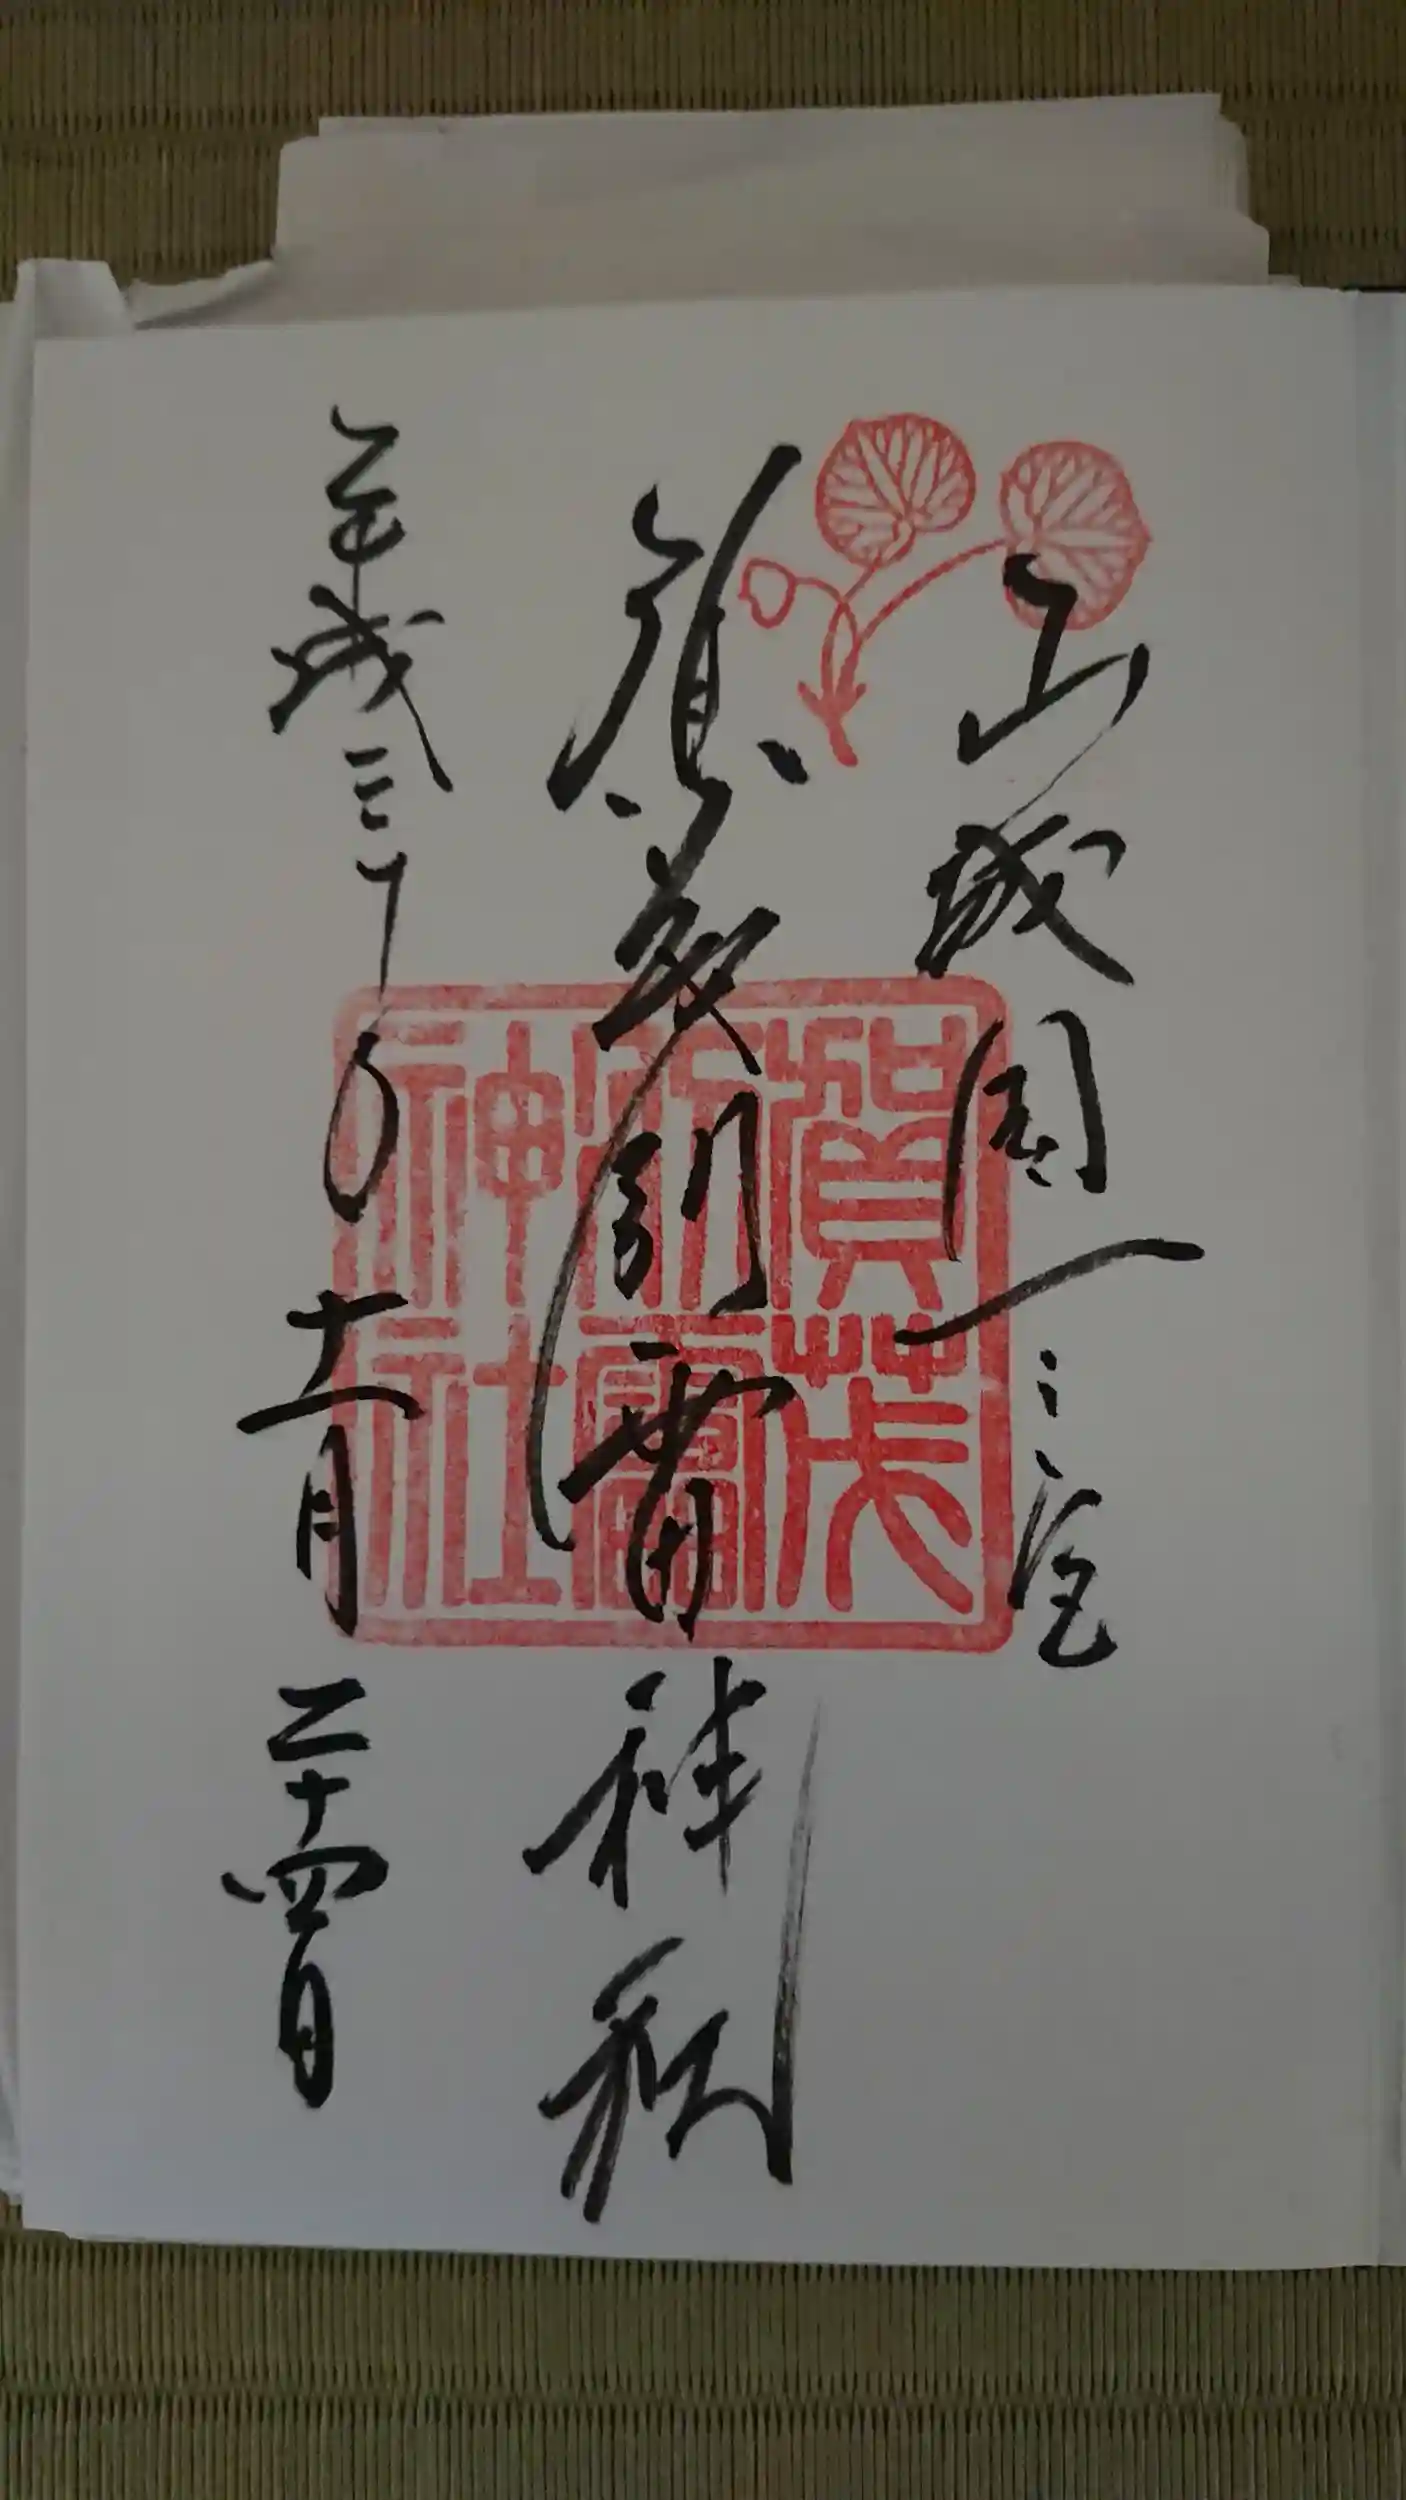 山城国一之宮
賀茂別雷神社
平成三十年十一月二十四日
賀茂
別雷
神社